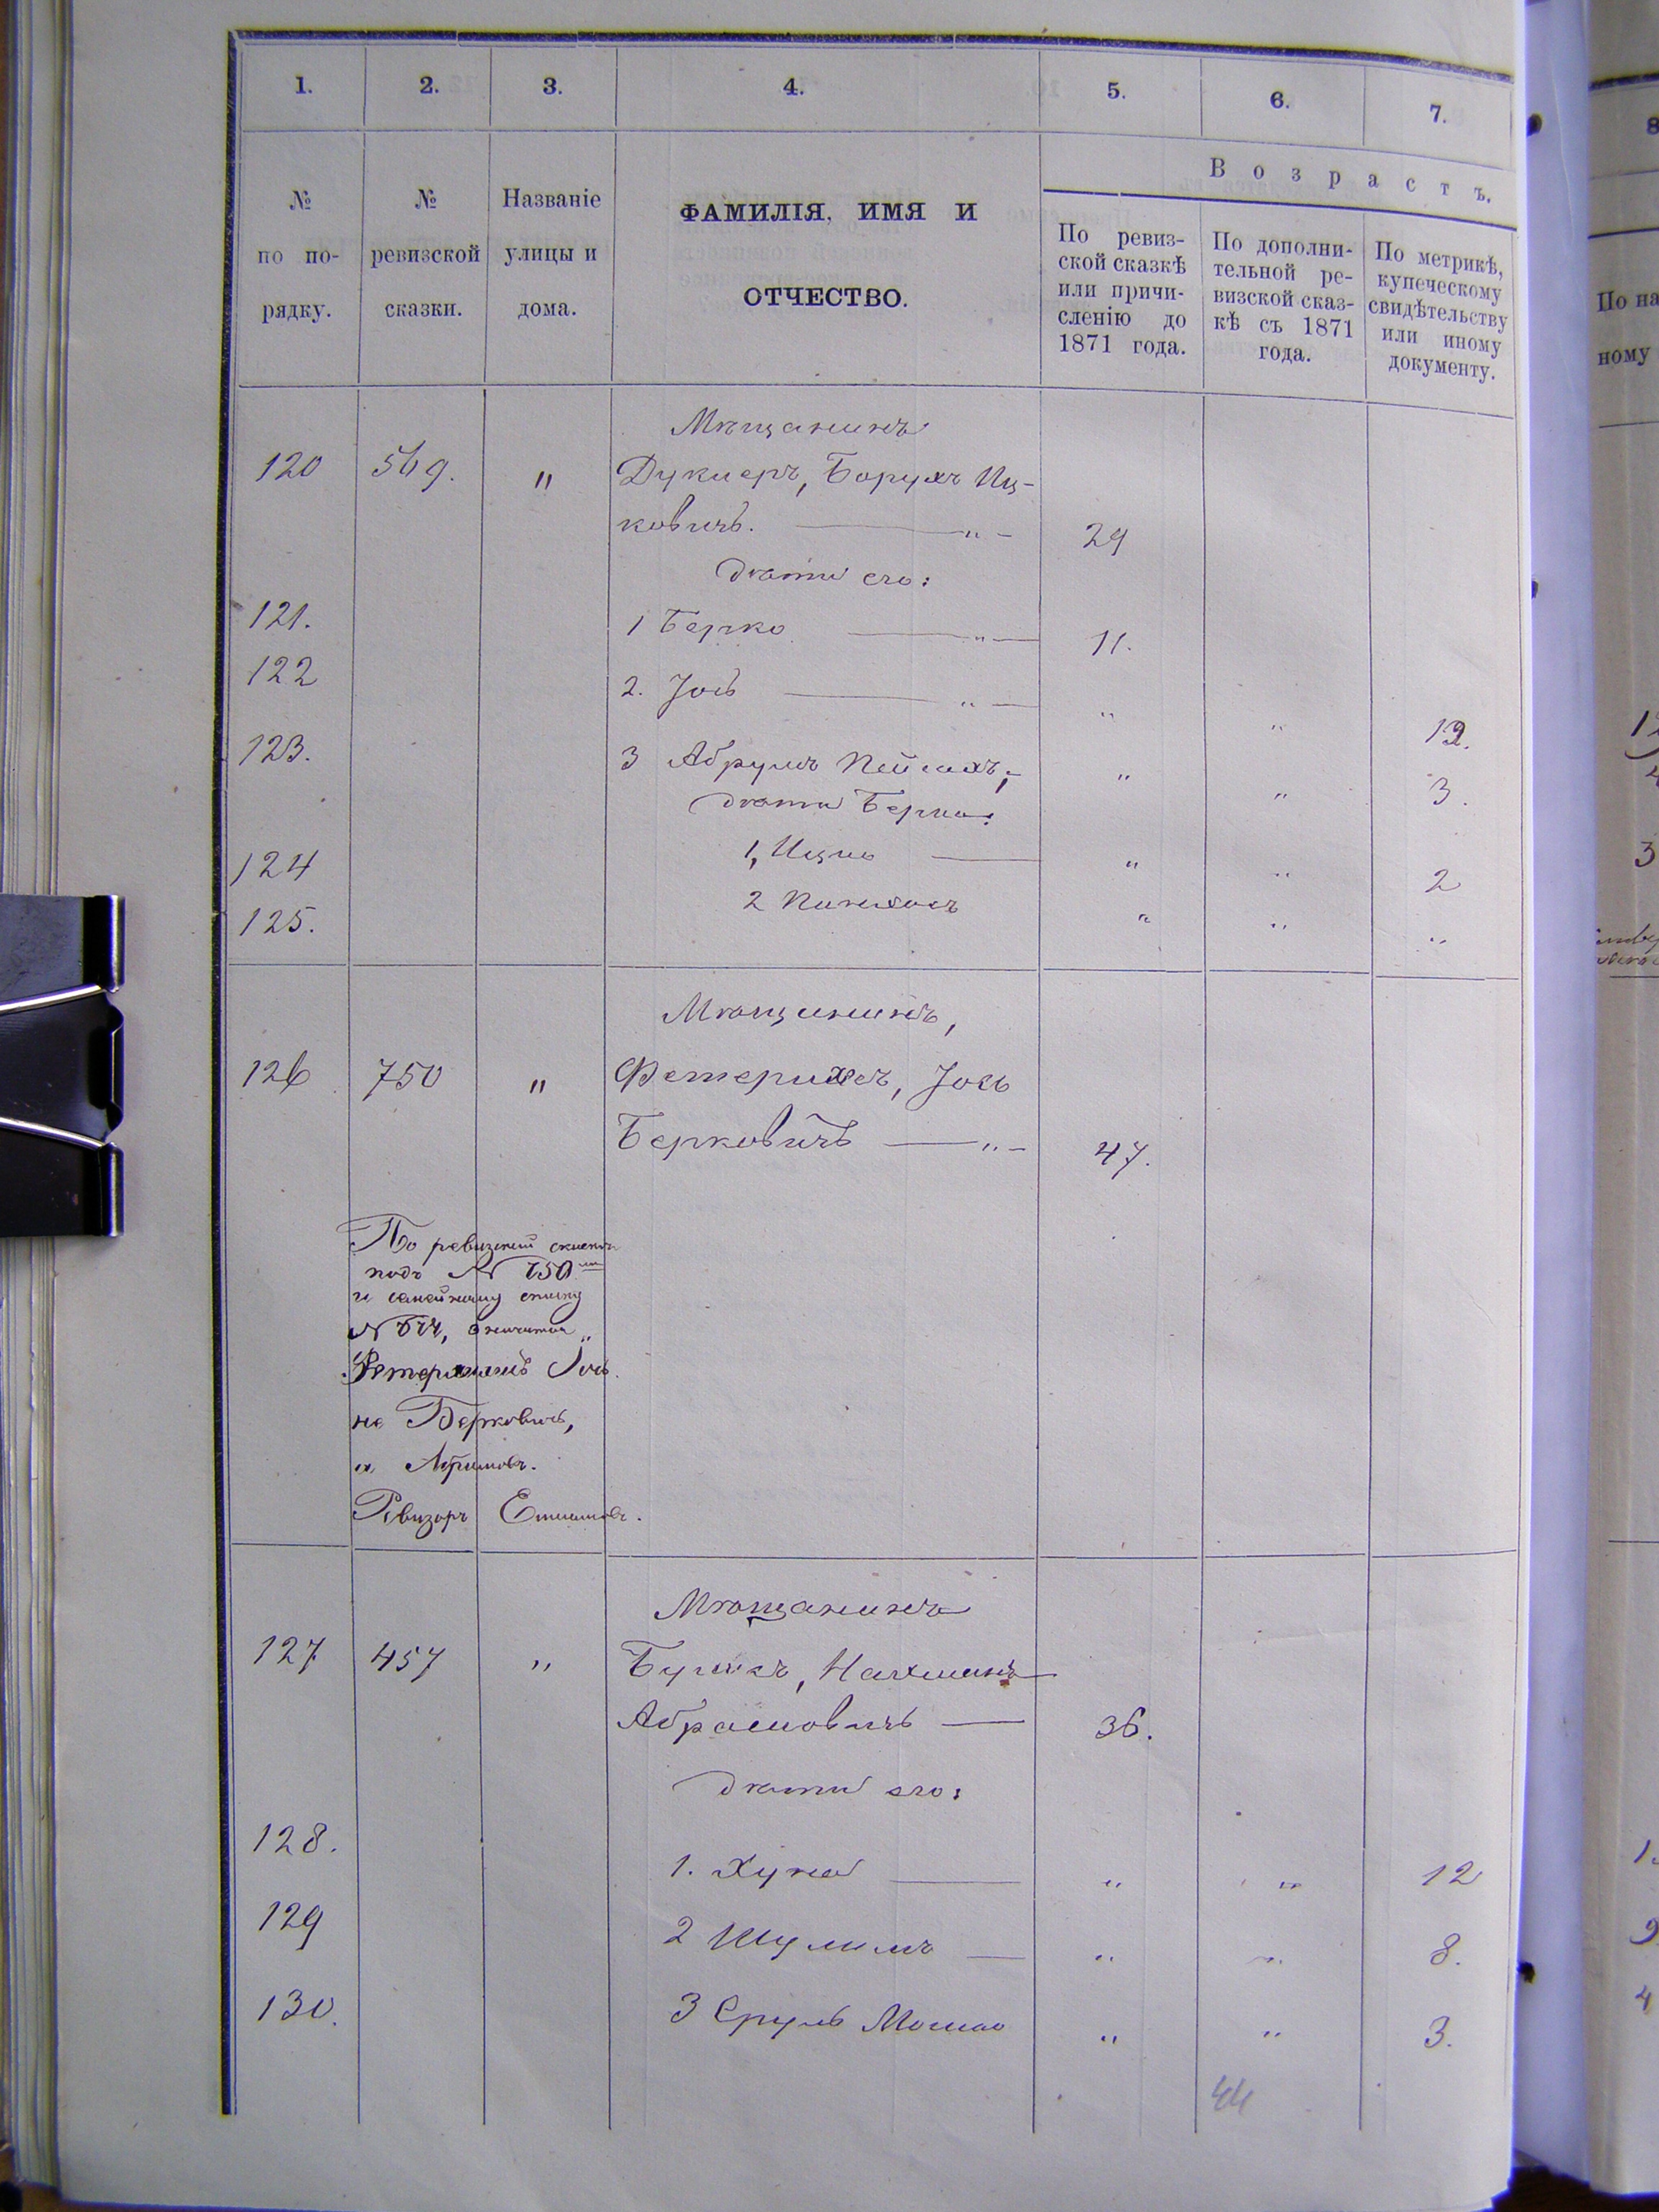 1. 2. 3. 4. 5. 6. 7.
№ по по-рядку.
№ ревизской сказки.
Названіе улицы и дома.
ФАМИЛІЯ, ИМЯ И
ОТЧЕСТВО.
Возрастъ.
По ревиз-
ской сказкѣ
или причи-
сленію до
1871 года.
По дополни-
тельной ре-
визской сказ-
кѣ съ 1871
года.
По метрикѣ,
купеческому
свидѣтельству
или иному
документу.
Мѣщанинъ
120 569. " Дукнеръ, Борухъ Иц-
ковичъ. " 29
дѣти его:
121. 1 Берко " 11.
122 2. Іось " " " 12.
123. 3 Абрумъ " " 3.
дѣти Берки:
124 1, Ицко " " 2
125. 2 Пинхасъ " " "
Мѣщанинъ,
126 750 " Фетерихеръ, Іось
Берковичъ " 47.
По ревизской сказки
подъ № 750
и семейному списку
№ значится
Іось
не Берковичъ,
а
Ревизоръ
Мѣщанинъ
127 457 " Нахманъ
Абрамовичъ 36.
дѣти его:
128. 1. Хуна " " 12
129 2 Шулимъ " " 8.
130. 3 Сруль Мошко " " 3.
44
8
По на
ному